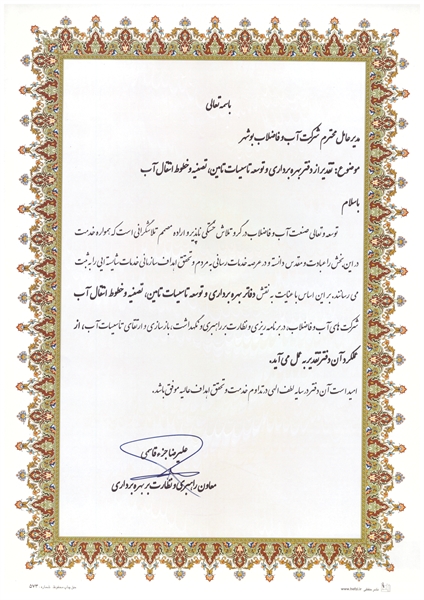 باسمه تعالی
مدیرعامل محترم شرکت آب و فاضلاب بوشهر
موضوع: تقدیر از دفتر بهره برداری و توسعه تاسیسات تامین، تصفیه و خطوط انتقال آب
باسلام
توسعه و تعالی صنعت آب و فاضلاب در گرو تلاش خستگی ناپذیر و اراده مصمم تلاشگرانی است که همواره خدمت
در این بخش را عبادت و مقدس دانسته و در عرصه خدمات رسانی به مردم و تحقق اهداف سازمانی خدمات شایسته ایی را به ثبت
می رسانند. بر این اساس با عنایت به نقش دفاتر بهره برداری و توسعه تاسیسات تامین، تصفیه و خطوط انتقال آب
شرکت های آب و فاضلاب، در برنامه ریزی و نظارت بر راهبری و نگهداشت، بازسازی و ارتقای تاسیسات آب، از
عملکرد آن دفتر تقدیر به عمل می آید.
امید است آن دفتر در سایه لطف الهی در تداوم خدمت و تحقق اهداف عالیه موفق باشد.
علیرضا جزء قاسمی
معاون راهبری و نظارت بر بهره برداری